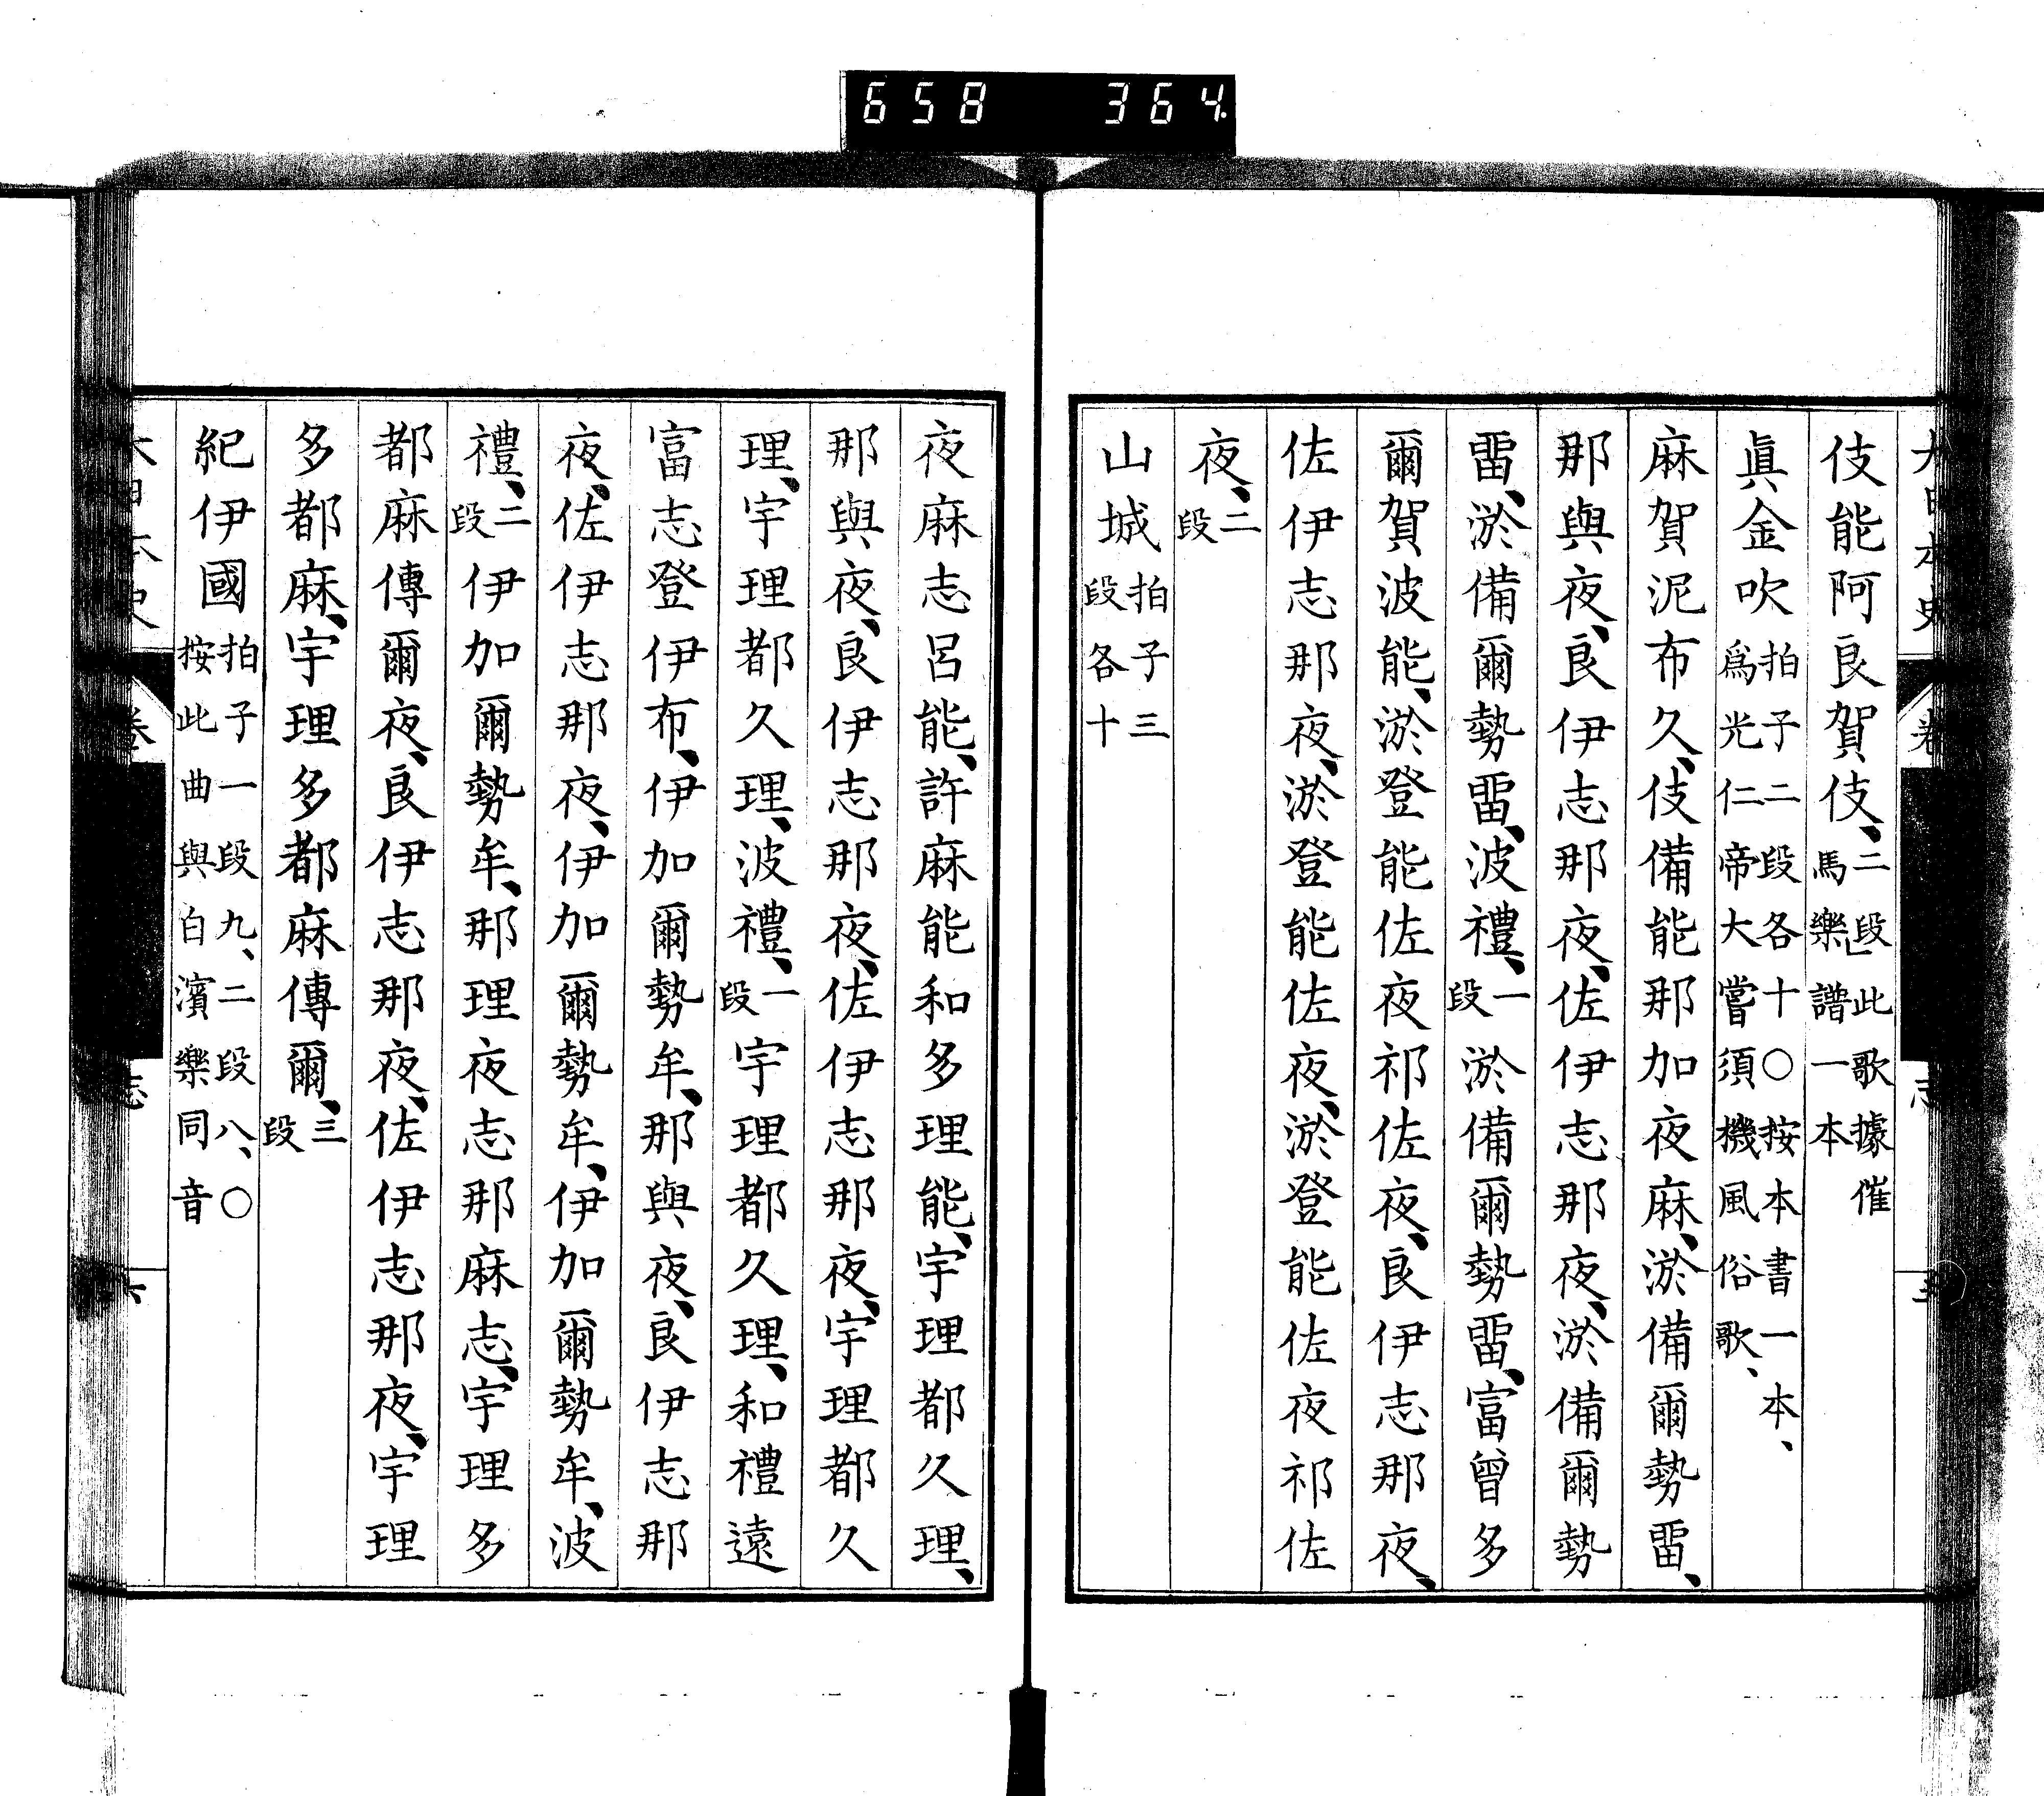 658 364
大日本史 卷 志 五
伎能阿良賀伎、二段此歌據催馬樂譜一本
眞金吹拍子二段各十○按本書一本、爲光仁帝大嘗須機風俗歌、
麻賀泥布久、伎備能那加夜麻、淤備爾勢雷、
那與夜、良伊志那夜、佐伊志那夜、淤備爾勢
雷、淤備爾勢雷、波禮、一段淤備爾勢雷、富曾多
爾賀波能、淤登能佐夜祁佐夜、良伊志那夜、
佐伊志那夜、淤登能佐夜、淤登能佐夜祁佐
夜、二段
山城拍子三段各十
夜麻志呂能、許麻能和多理能、宇理都久理、
那與夜、良伊志那夜、佐伊志那夜、宇理都久
理、宇理都久理、波禮、一段宇理都久理、和禮遠
富志登伊布、伊加爾勢牟、那與夜、良伊志那
夜、佐伊志那夜、伊加爾勢牟、伊加爾勢牟、波
禮、二段伊加爾勢牟、那理夜志那麻志、宇理多
都麻傳爾夜、良伊志那夜、佐伊志那夜、宇理
多都麻、宇理多都麻傳爾、三段
紀伊國拍子一段九、二段八、○按此曲與白濱樂同音
大日本史 卷 志 六